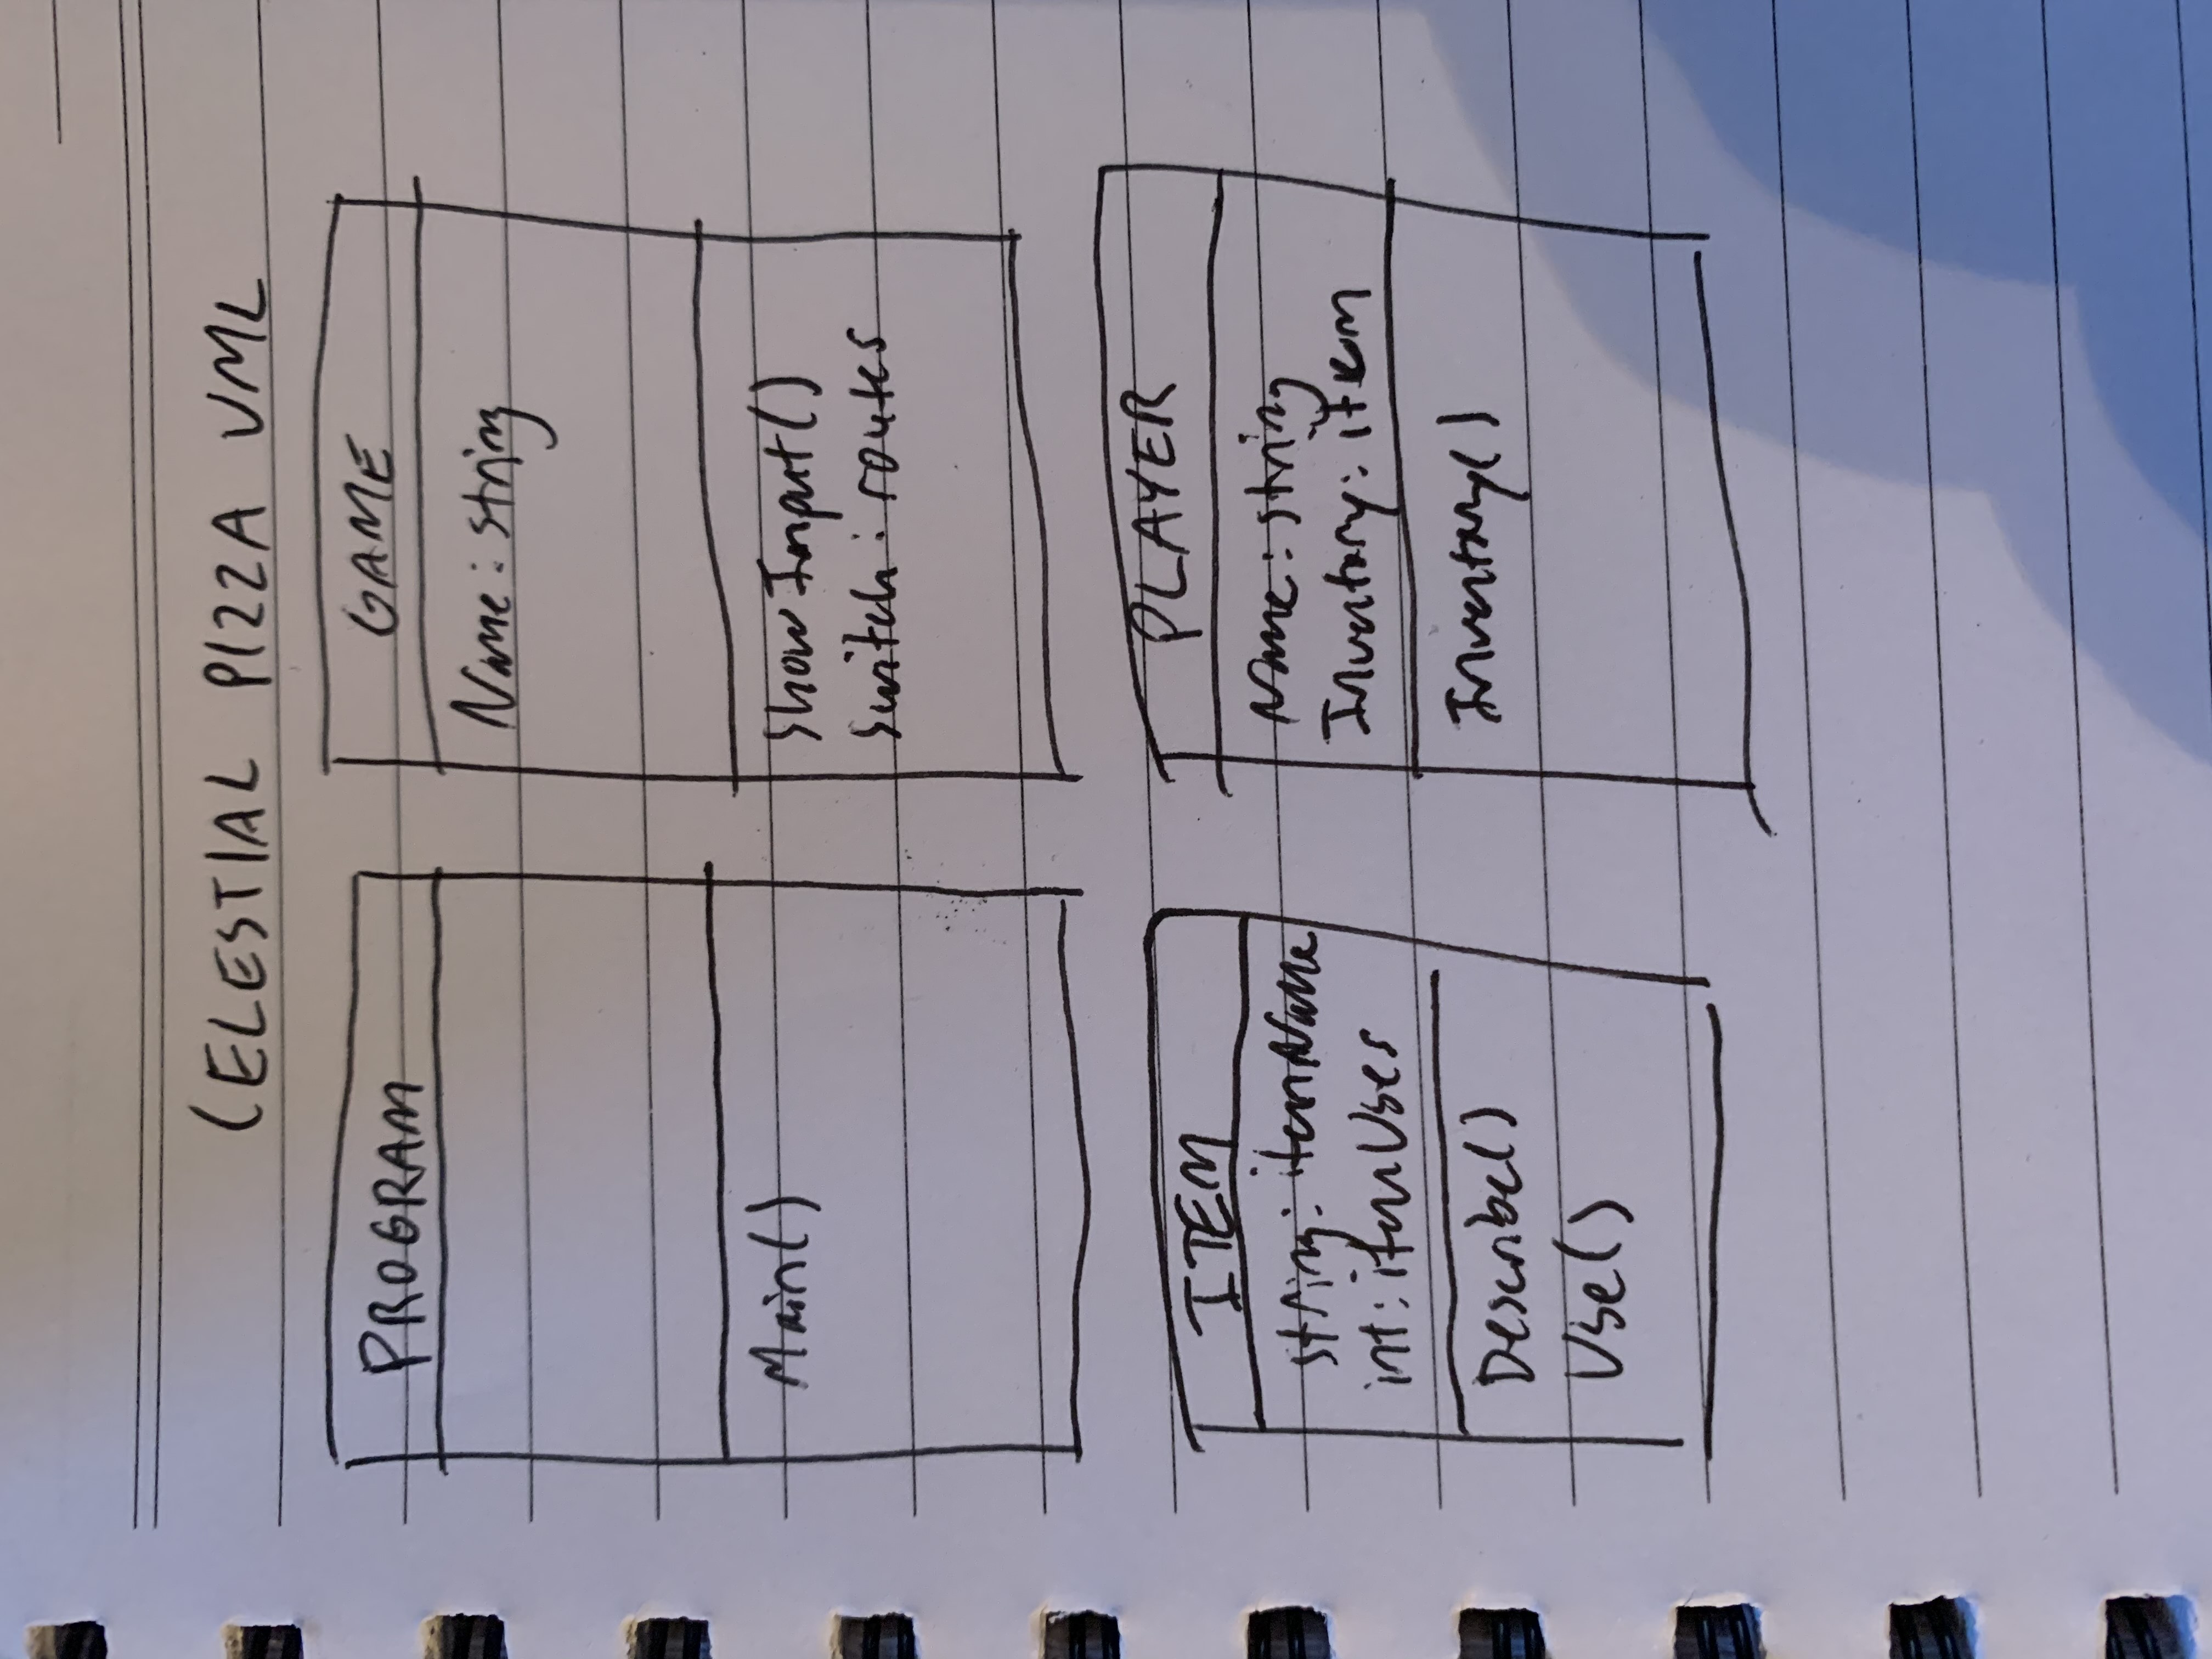 CELESTIAL PIZZA UML
PROGRAM
Main()
GAME
Name: string
Show Input()
Switch: routes
ITEM
string: itemName
int: itemUses
Describe()
Use()
PLAYER
Name: string
Inventory: item
Inventory()